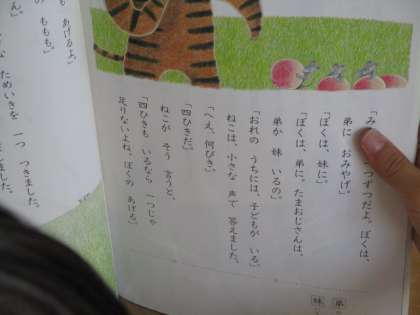 「み つずつだよ。ぼくは、
弟に おみやげ。」
「ぼくは、妹に。」
「ぼくは、弟に。たまおじさんは、
弟か 妹 いるの。」
「おれの うちには、子どもが いる。」
ねこは、小さな 声で 答えました。
「へえ、何びき。」
「四ひきだ。」
ねこが そう 言うと、
「四ひきも いるなら 一つじゃ
足りないよね。ぼくの あげる
弟
妹
も あげるよ。」
の ももも。」
ん。」
ためいきを 一つ つきました。
ました。